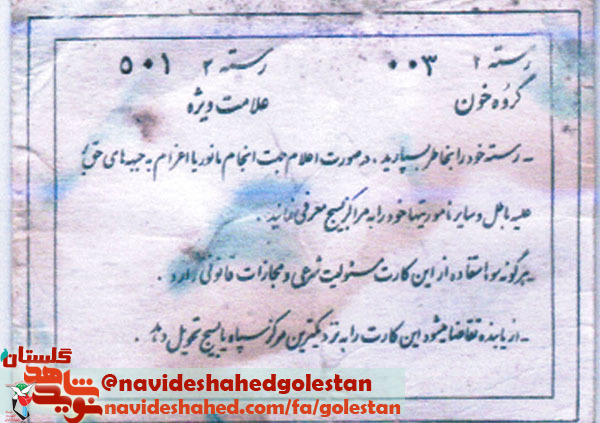 رسته ۱ ۰۰۳ رسته ۲ ۵۰۱
گروه خون علامت ویژه
- رسته خود را بخاطر بسپارید ، در صورت اعلام جهت انجام مانور یا اعزام به جبهه های حق
علیه باطل و سایر مأموریتها خود را به مراکز بسیج معرفی نمائید .
- هرگونه سوء استفاده از این کارت مسئولیت شرعی و مجازات قانونی دارد .
- از یابنده تقاضا میشود این کارت را به نزدیکترین مرکز سپاه یا بسیج تحویل دهد .
گلستان
نوید شاهد
@navideshahedgolestan
navideshahed.com/fa/golestan